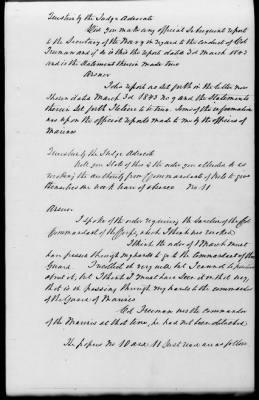 Question by the Judge Advocate
Did you make any official subsequent report
to the Secretary of the Navy in regard to the conduct of Col
Freeman and if so is this the report dated 3rd March 1843
and is the statement therein made true
Answer
I did report as set forth in the letter now
shown dated March 3rd 1843 No 9 and the Statements
therein set forth I believe is true. Some of the information
was upon the official reports made to me by the officers of
Marines
Question by the Judge Advocate
Will you state if this is the order you alluded to as
revoking the authority from Commandants of to give
themselves one week leave of absence No 11
Answer
I spoke of the order requiring the of the Col
Commandant of the Corps, which I think was revoked
I think the order of 1 March must
have passed through my hands to go to the Commandant of the
Guard I recollect it very well but I cannot be
about it, but I think I must have seen it on that day,
that is in passing through my hands to the commander
of the Guard of Marines
Col Freeman was the commander
of the Marines at that time, he had not been detached
The papers No 10 and 11 Just read are as follows